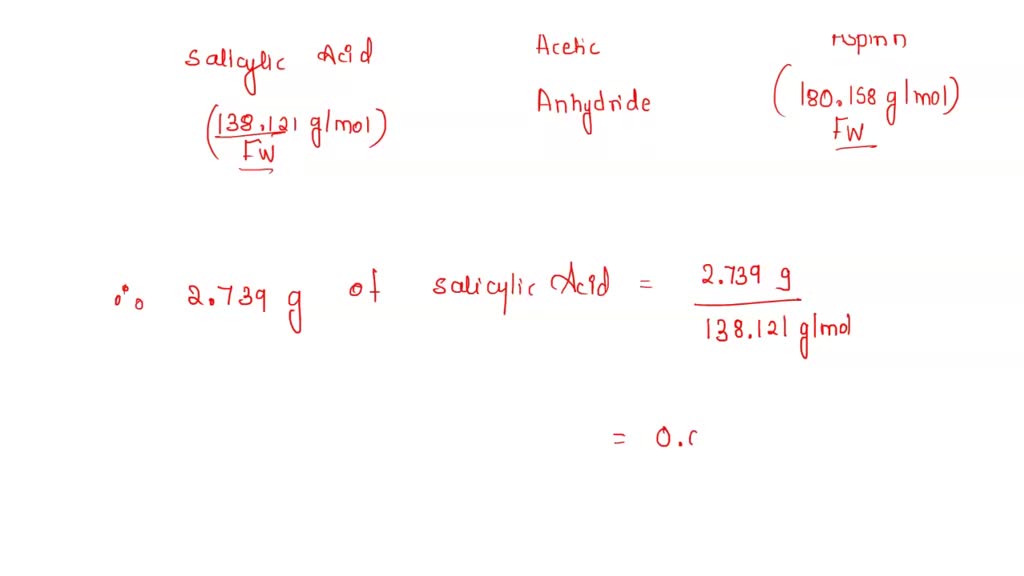 Salicylic Acid
(138.121 g/mol)
FW
Acetic
Anhydride
(180.158 g/mol)
FW
∴ 2.739 g of Salicylic Acid = 2.739 g
138.121 g/mol
= 0.